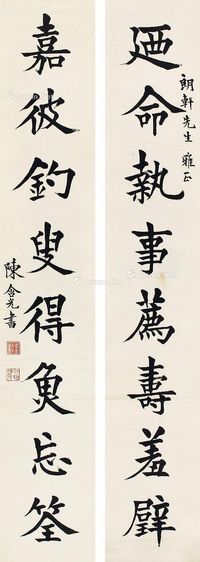 迺命執事薦壽羞璧
朗軒先生 雅正
嘉彼釣叟得魚忘筌
陳含光書